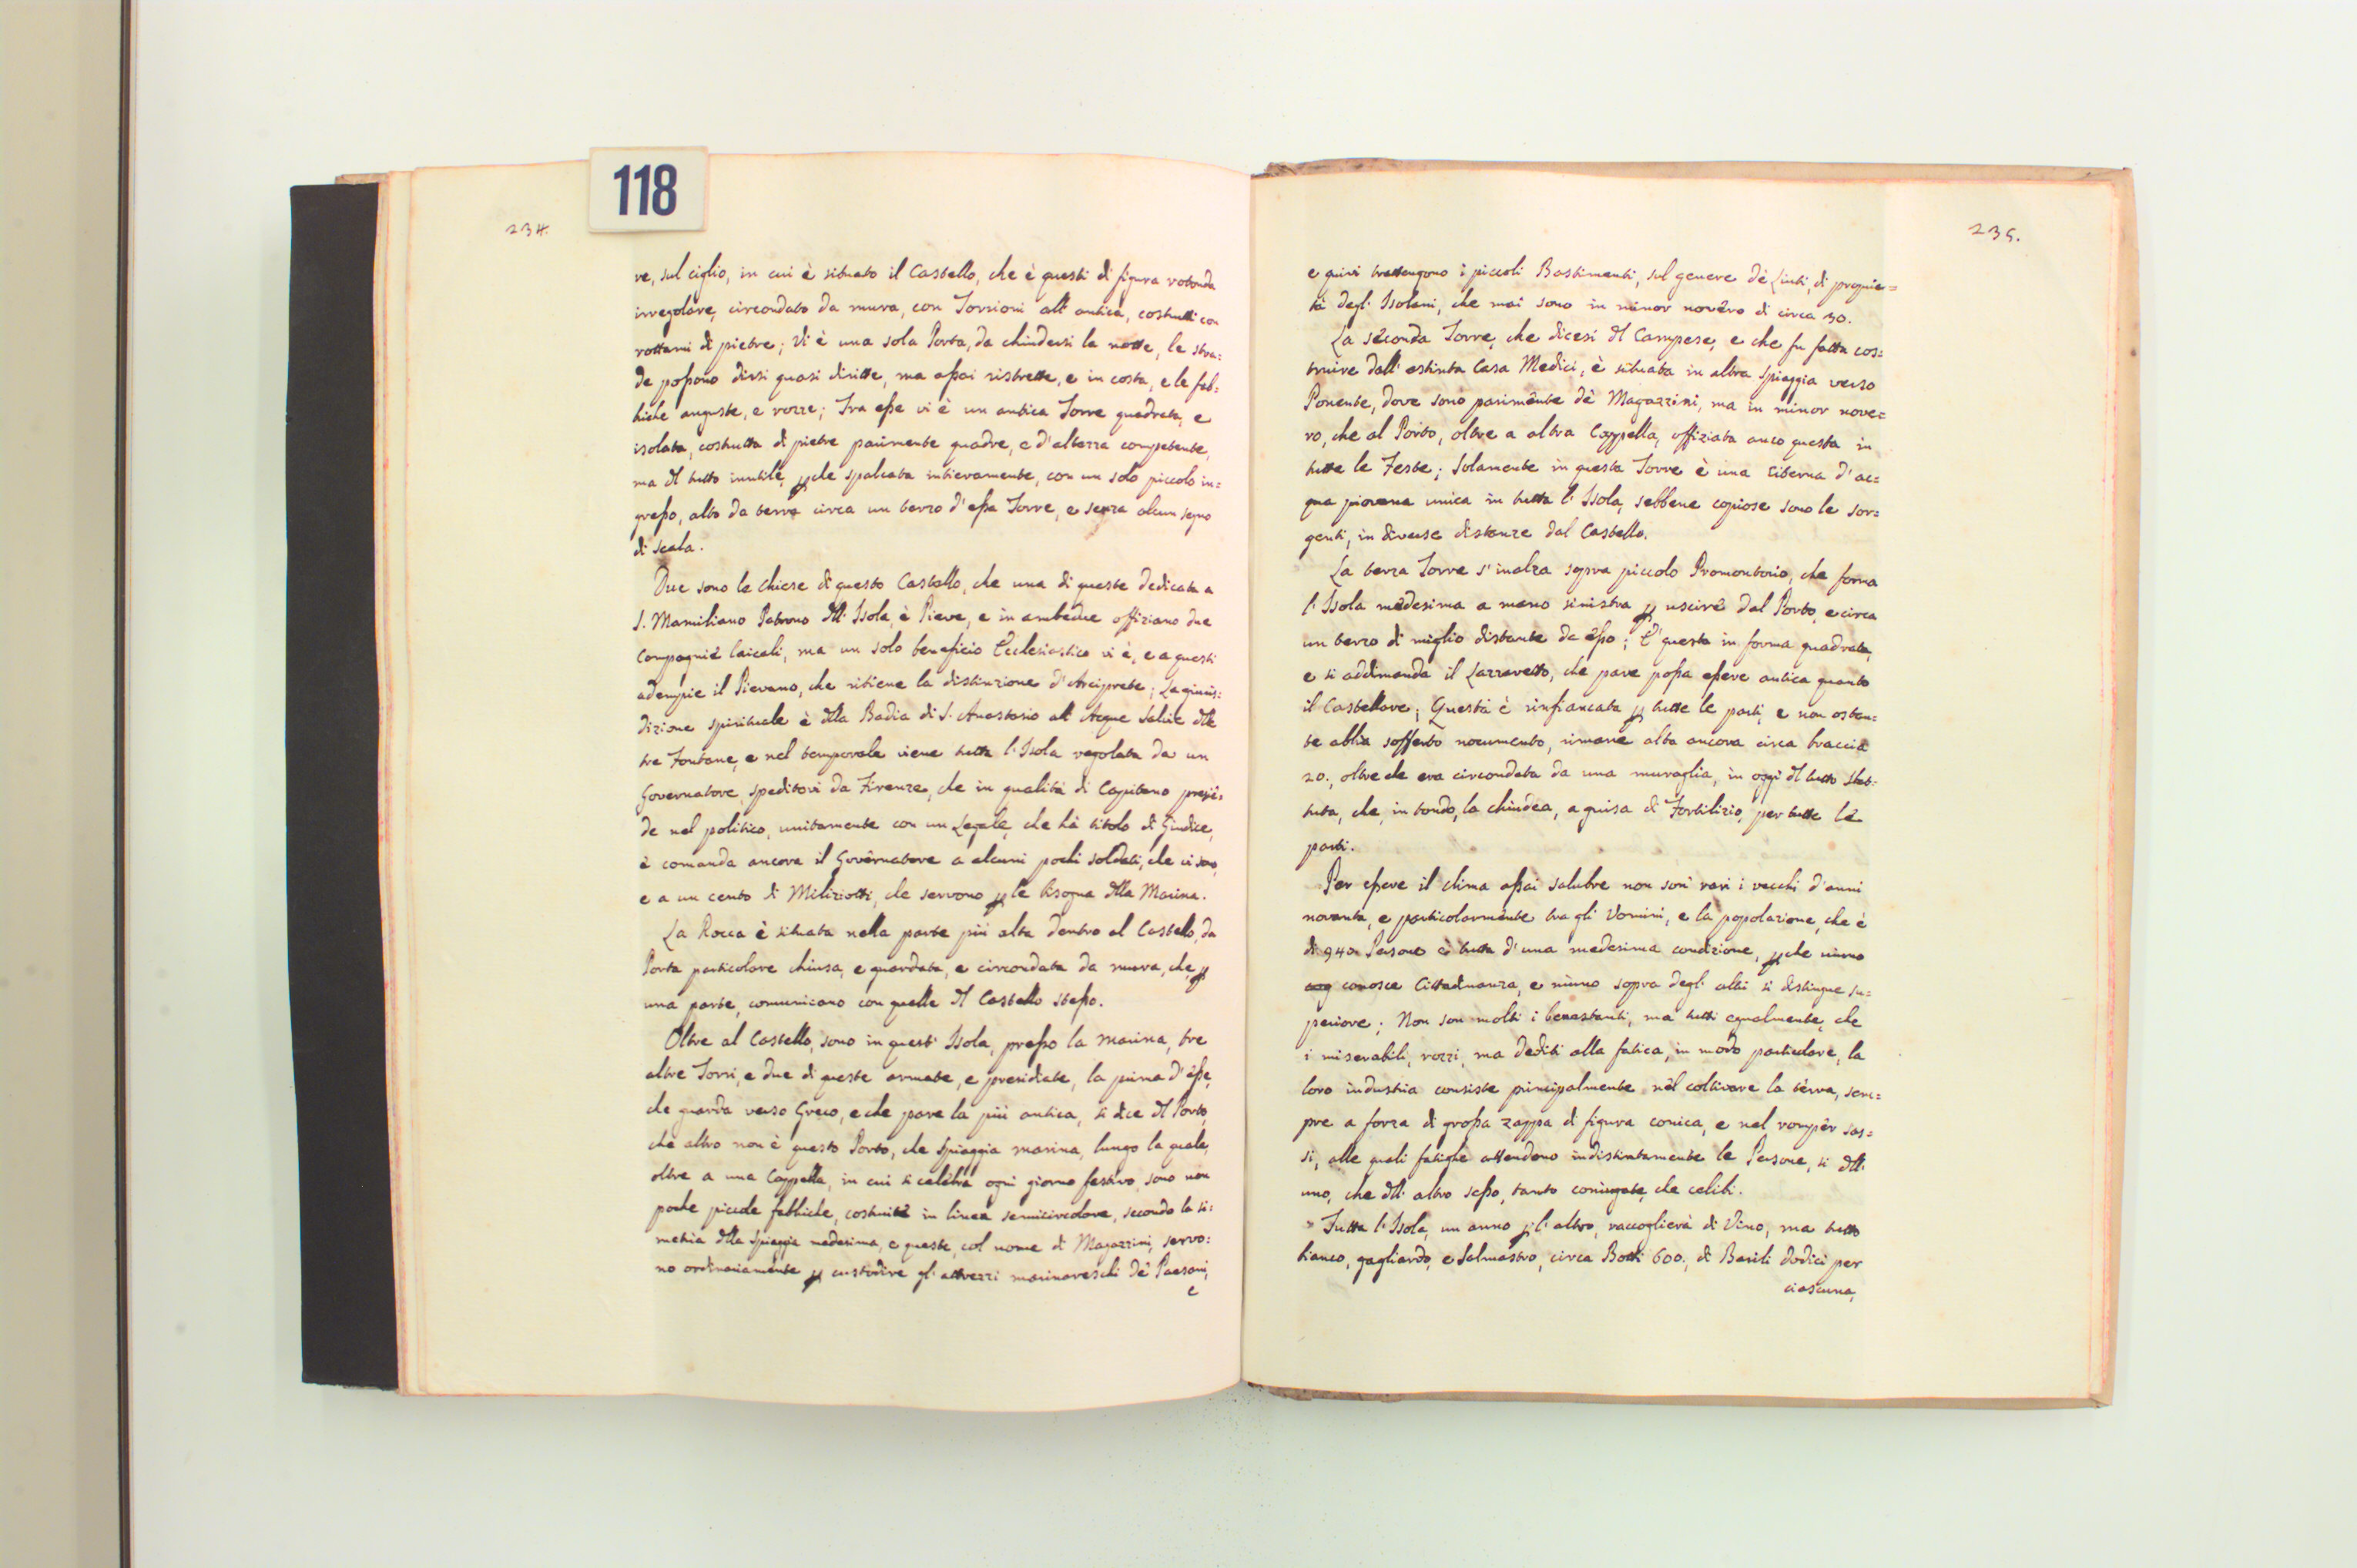 118
234.
ve, sul ciglio, in cui è situato il Castello, che è questi di figura rotonda
irregolare, circondato da mura, con Torrioni all' antica, costrutti con
rottami di pietre; Vi è una sola Porta, da chiudersi la notte, le stra=
de possono dirsi quasi diritte, ma assai ristrette, e in costa, e le fab=
biche anguste, e rozze; Tra esse vi è un antica Torre quadrata, e
isolata, costrutta di pietre parimente quadre, e d'altezza competente,
ma dl tutto inutile, pche spalcata intieramente, con un solo piccolo in=
gresso, alto da terra circa un terzo d'essa Torre, e senza alcun segno
di scala.
Due sono le chiese di questo Castello, che una di queste dedicata a
S. Mamiliano Patrono dll' Isola, è Pieve, e in ambedue offiziano due
Compagnie laicali, ma un solo beneficio Ecclesiastico vi è, e a questi
adempie il Pievano, che ritiene la distinzione d'Arciprete; La giuris=
dizione spirituale è dlla Badia di S. Anastasio all' Acque Salvie dlle
tre Fontane, e nel temporale viene tutta l'Isola regolata da un
Governatore, speditovi da Firenze, che in qualità di Capitano presie=
de nel politico, unitamente con un Legale, che hà titolo di Giudice,
è comanda ancora il Governatore a alcuni pochi soldati, che vi sono,
e a un cento di Miliziotti, che servono p le bisogna dlla Marina.
La Rocca è situata nella parte più alta dentro al Castello, da
Porta particolare chiusa, e guardata, e circondata da mura, che, p
una parte, comunicano con quelle dl Castello stesso.
Oltre al Castello, sono in quest' Isola, presso la marina, tre
altre Torri, e due di queste armate, e presidiate, la prima d'esse,
che guarda verso Greco, e che pare la più antica, si dice dl Porto,
che altro non è questo Porto, che Spiaggia marina, lungo la quale,
oltre a una Cappella, in cui si celebra ogni giorno festivo, sono non
poche piccole fabbiche, costruite in linea semicircolare, secondo la si=
metria dlla Spiaggia medesima, e queste, col nome di Magazzini, servo=
no ordinariamente p custodire gl' attrezzi marinareschi de' Paesani,
e
235.
e quivi trattengono i piccoli Bastimenti, sul genere de' Liuti, di proprie=
tà degl' Isolani, che mai sono in minor novero di circa 30.
La seconda Torre, che dicesi dl Campese, e che fu fatta cos=
truire dall' estinta Casa Medici, è situata in altra Spiaggia verso
Ponente, dove sono parimente de' Magazzini, ma in minor nove=
ro, che al Porto, oltre a altra Cappella, offiziata anco questa in
tutte le Feste; Solamente in questa Torre è una Citerna d'ac=
qua piovana unica in tutta l'Isola, sebbene copiose sono le sor=
genti, in diverse distanze dal Castello.
La terza Torre s'inalza sopra piccolo Promontorio, che forma
l'Isola medesima a mano sinistra p uscire dal Porto, e circa
un terzo di miglio distante da esso; E' questa in forma quadrata,
e si addimanda il Lazzeretto, che pare possa essere antica quanto
il Castellare; Questa è rinfiancata p tutte le parti, e non ostan=
te abbia sofferto nocumento, rimane alta ancora circa braccia
20., oltreche era circondata da una muraglia, in oggi dl tutto abat=
tuta, che, in tondo, la chiudea, a guisa di Fortilizio, per tutte le
parti.
Per essere il clima assai salubre non son' rari i vecchi d'anni
novanta, e particolarmente tra gli Uomini, e la popolazione, che è
di 940. Persone è tutta d'una medesima condizione, pche niuno
conosce Cittadinanza, e niuno sopra degl' altri si distingue su=
periore; Non son molti i benestanti, ma tutti egualmente, che
i miserabili, rozzi, ma dediti alla fatica, in modo particolare, la
loro industria consiste principalmente nel coltivare la terra, sem=
pre a forza di grossa zappa di figura conica, e nel romper sas=
si, alle quali fatighe attendono indistintamente le Persone, sì dll'
uno, che dll' altro sesso, tanto coniugate, che celibi.
Tutta l'Isola, un anno p l'altro, raccoglierà di Vino, ma tutto
bianco, gagliardo, e Salmastro, circa Botti 600., di Barili dodici per
ciascuna,